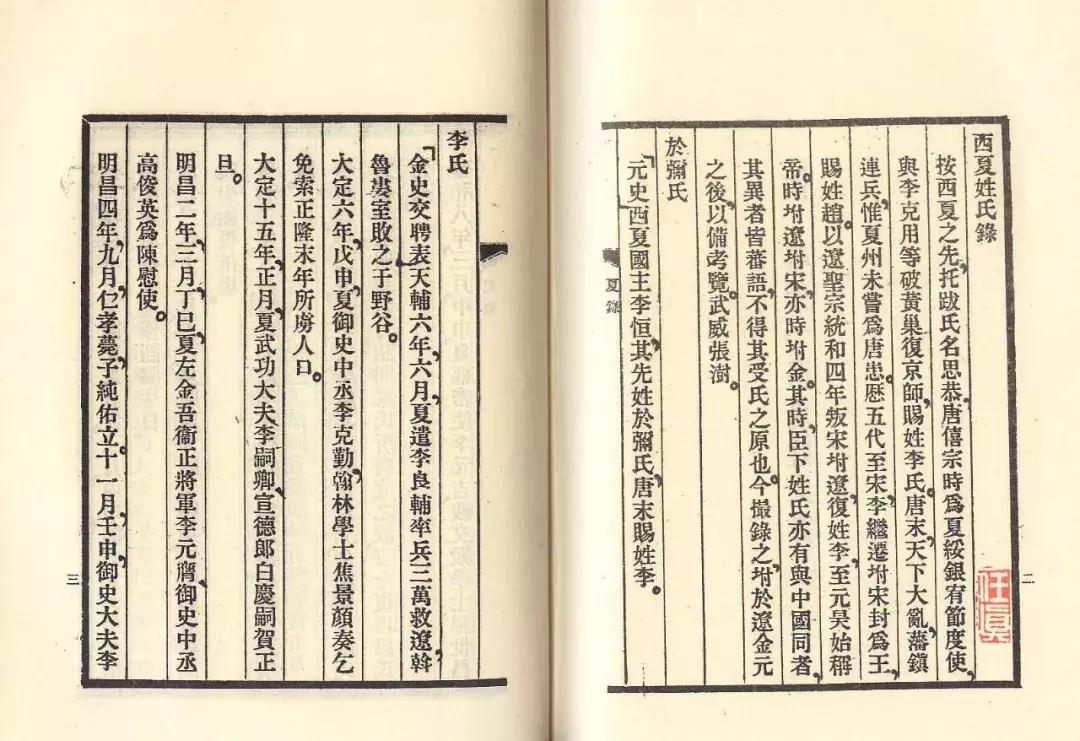 西夏姓氏錄
按西夏之先托跋氏名思恭,唐僖宗時爲夏綏銀宥節度使,
與李克用等破黃巢復京師,賜姓李氏。唐末,天下大亂,藩鎭
連兵,惟夏州未嘗爲唐患。歷五代至宋,李繼遷坿宋封爲王,
賜姓趙。以遼聖宗統和四年叛宋坿遼,復姓李,至元昊始稱
帝。時坿遼坿宋,亦時坿金。其時,臣下姓氏亦有與中國同者,
其異者皆蕃語,不得其受氏之原也。今撮錄之,坿於遼金元
之後,以備考覽。武威張澍。
於彌氏
元史西夏國主李恒,其先姓於彌氏,唐末賜姓李。
夏錄
二
任眞
李氏
金史交聘表天輔六年,六月,夏遣李良輔率兵三萬救遼,斡
魯婁室敗之于野谷。
大定六年,戊申,夏御史中丞李克勤,翰林學士焦景顏奏乞
免索正隆末年所虜人口。
大定十五年,正月,夏武功大夫李嗣卿、宣德郎白慶嗣賀正
旦。
明昌二年,三月,丁巳,夏左金吾衞正將軍李元膺,御史中丞
高俊英爲陳慰使。
明昌四年,九月,仁孝薨,子純佑立。十一月,壬申,御史大夫李
三